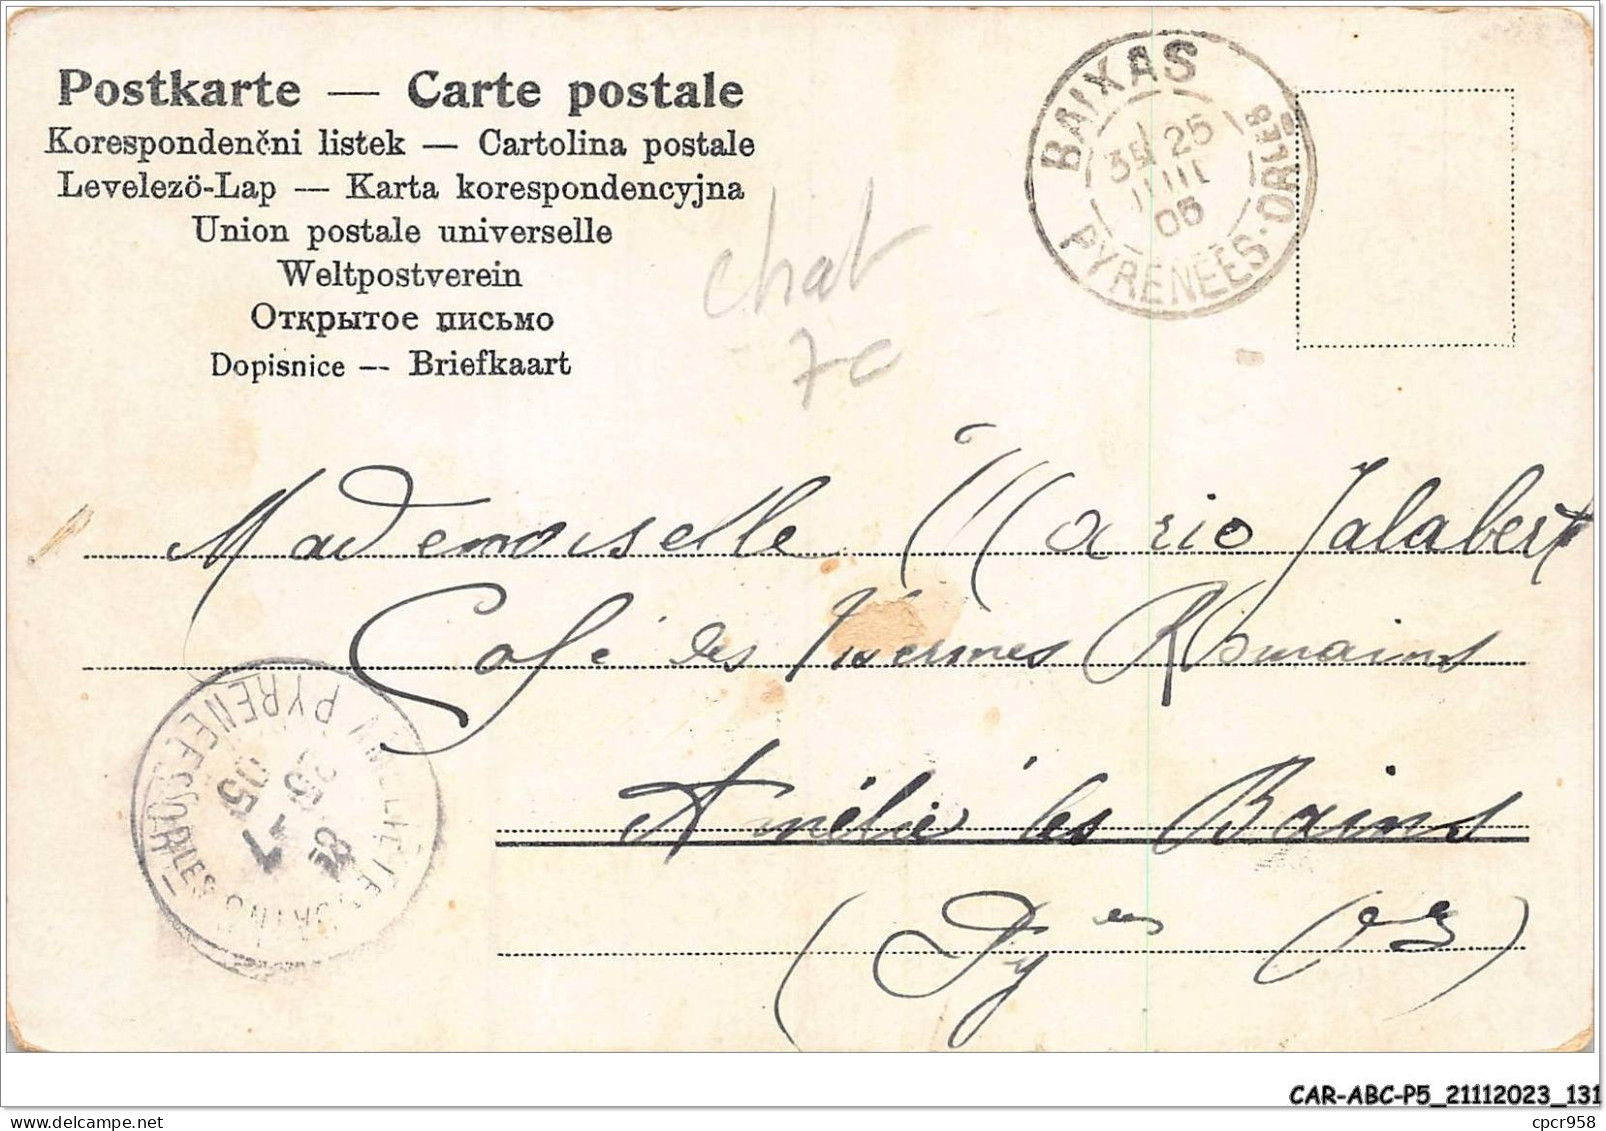 Postkarte — Carte postale
Korespondenčni listek — Cartolina postale
Levelezö-Lap — Karta korespondencyjna
Union postale universelle
Weltpostverein
Открытое письмо
Dopisnice — Briefkaart
BAIXAS
3E 25
05
PYRENEES-ORLES
chat
70
Mademoiselle Marie Jalabert
Café des Thermes Romains
Amélie les Bains
(Pyées Oles)
PYRENEES ORLES
05
CAR-ABC-P5_21112023_131
cpcr958